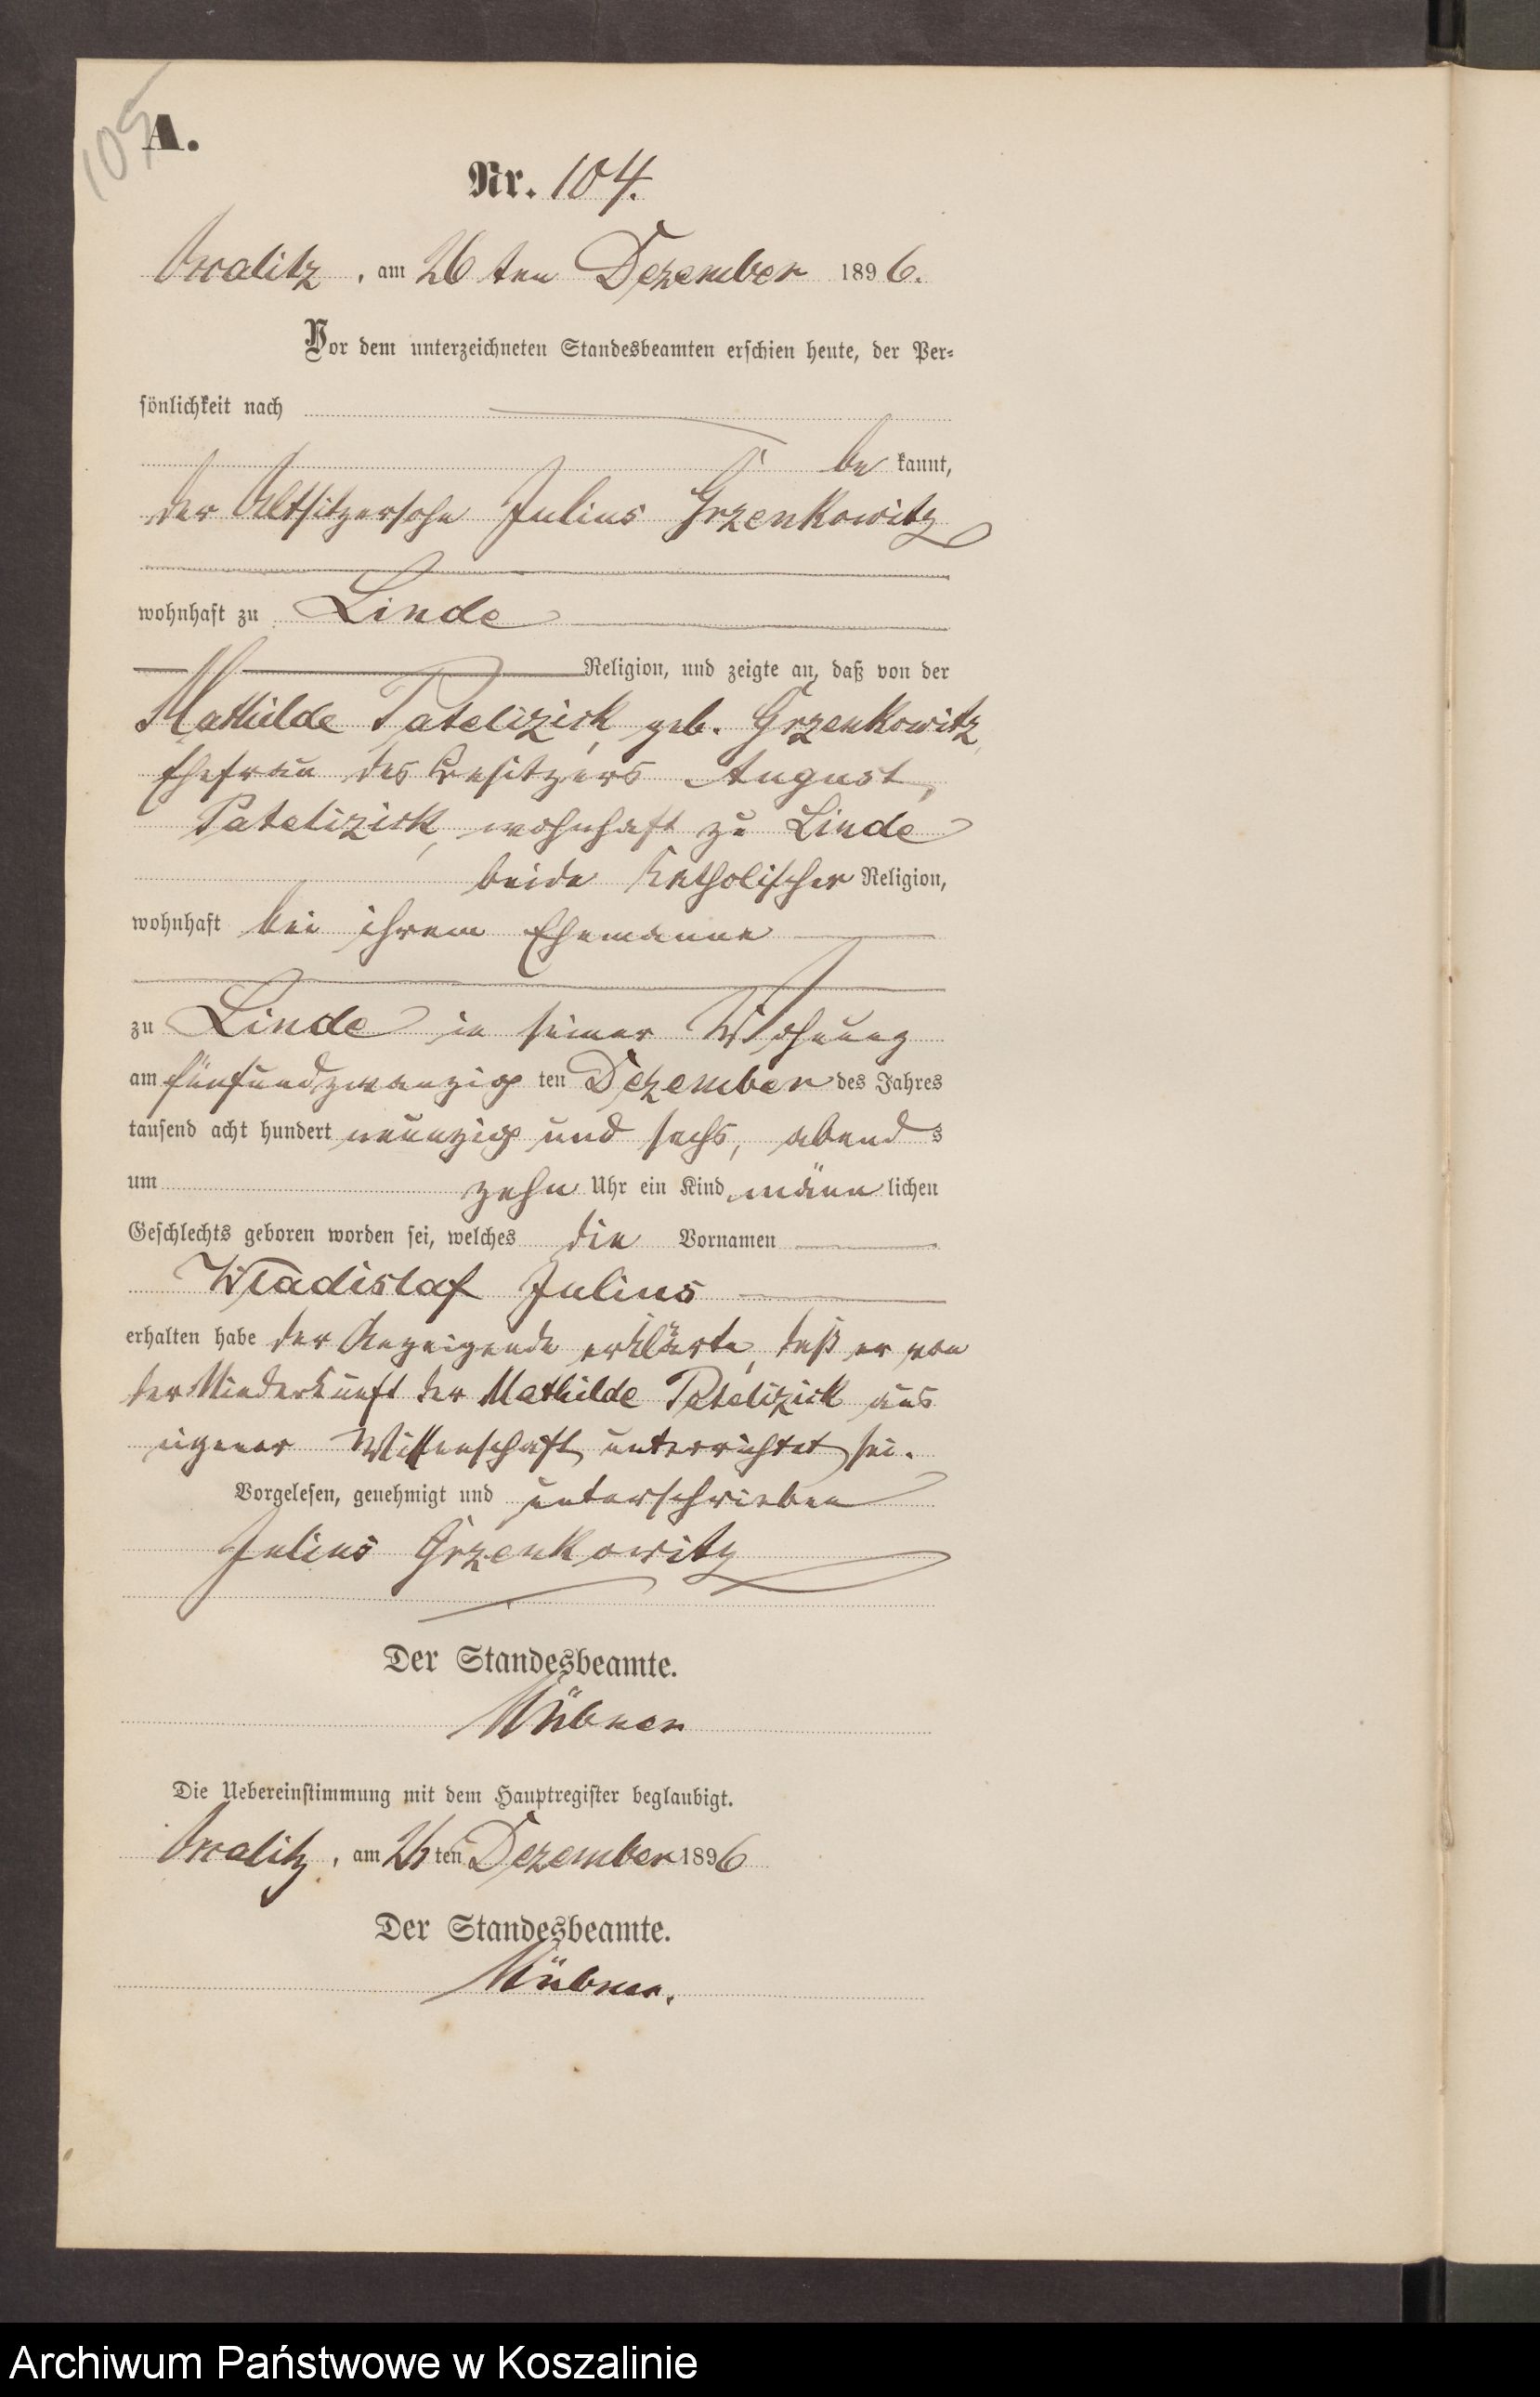 105
A.
Nr. 104.
am 26 ten Dezember 1896.
Vor dem unterzeichneten Standesbeamten erschien heute, der Per-
sönlichkeit nach
be kannt,
der Altsitzersohn Julius Grzenkowitz
wohnhaft zu Linde
Religion, und zeigte an, daß von der
Mathilde Patelizick geb. Grzenkowitz,
Ehefrau des Besitzers August
Patelizick, wohnhaft zu Linde
beide katholischer Religion,
wohnhaft bei ihrem Ehemanne
zu Linde in seiner Wohnung
am fünfundzwanzig ten Dezember des Jahres
tausend acht hundert neunzig und sechs, abend s
um zehn Uhr ein Kind männ lichen
Geschlechts geboren worden sei, welches die Vornamen
Wladislaf Julius
erhalten habe der Anzeigende erklärte, daß er von
der Niederkunft der Mathilde Patelizick aus
eigener Wissenschaft unterrichtet sei.
Vorgelesen, genehmigt und unterschrieben
Julius Grzenkowitz
Der Standesbeamte.
Die Uebereinstimmung mit dem Hauptregister beglaubigt.
am 26 ten Dezember 1896
Der Standesbeamte.
Archiwum Państwowe w Koszalinie